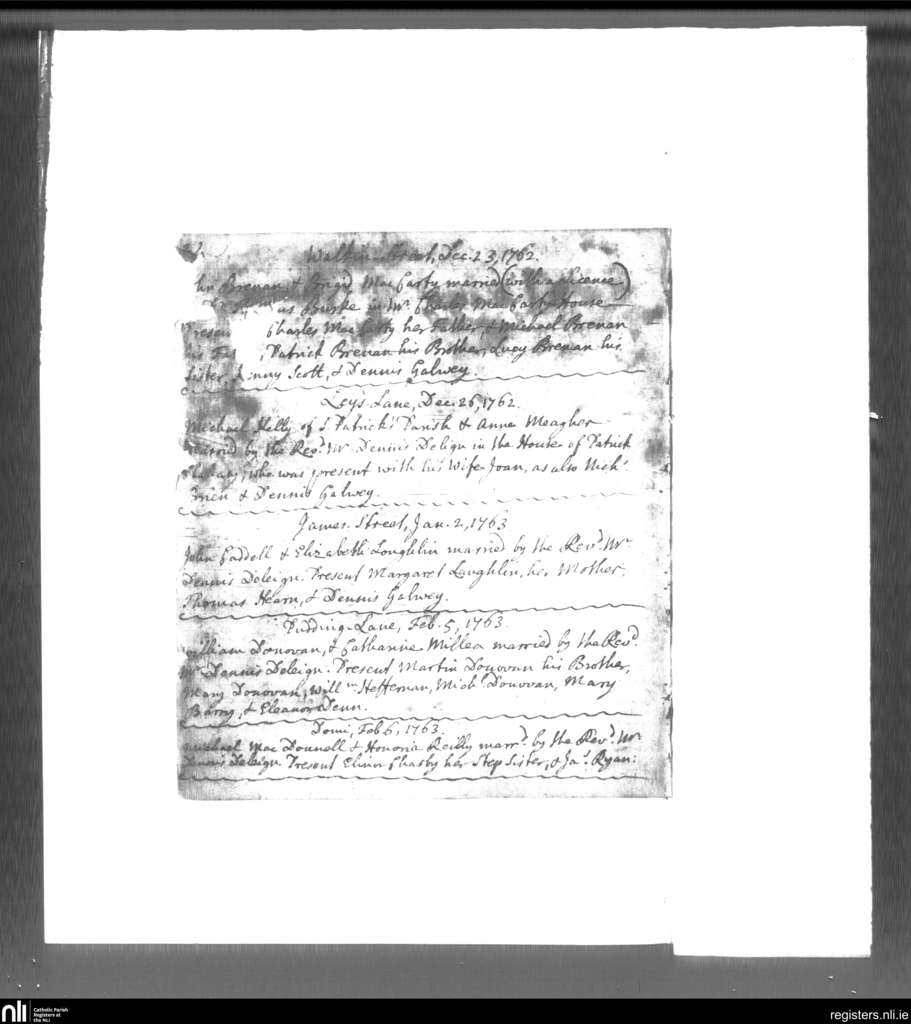 Walkin Street, Dec. 23, 1762.
Brenan & Brigid MacCarty married (with a licence)
Burke in Mr. Charles MacCarty House
Presen Charles MacCarty her Father & Michael Brenan
his Fa , Patrick Brenan his Brother, Lucy Brenan his
Sister, nny Scott, & Dennis Galwey.
Leys Lane, Dec. 26, 1762.
Michael Kelly of St Patricks Parish & Anne Meagher
married by the Revd. Mr. Dennis Deleign in the House of Patrick
who was present with his Wife Joan, as also Nichs.
& Dennis Galwey.
James-Street, Jan. 2, 1763
John Caddell & Elizabeth Loughlin married by the Revd. Mr.
Dennis Deleign. Present Margaret Laughlin, her Mother,
Thomas Hearn, & Dennis Galwey.
Pudding-Lane, Feb. 5, 1763.
William Donovan, & Catharine Millea married by the Revd.
Mr. Dennis Deleign. Present Martin Donovan his Brother,
Mary Donovan, Willm. Heffernan, Michl. Donovan, Mary
Barry, & Eleanor Denn.
Domi, Feb. 6, 1763.
Michael MacDonnell & Honoria Reilly marrd. by the Revd. Mr.
Dennis Deleign. Present Elinor her Step Sister, & Ja. Ryan:
nli
Catholic Parish
Registers at
the NLI
registers.nli.ie